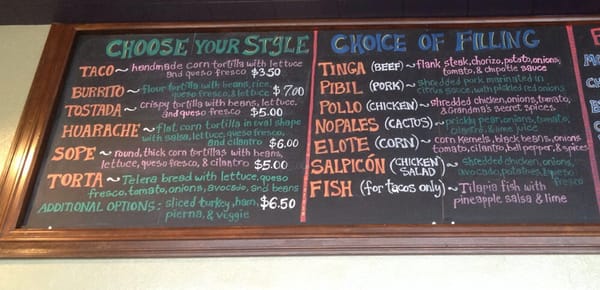 CHOOSE YOUR STYLE
TACO~ handmade corn tortilla with lettuce
and queso fresco $3.50
BURRITO~ flour tortilla with beans, rice
queso fresco, & lettuce $7.00
TOSTADA~ crispy tortilla with beans, lettuce,
and queso fresco $5.00
HUARACHE~ flat corn tortilla in oval shape
with salsa, lettuce, queso fresco,
and cilantro $6.00
SOPE~ round, thick corn tortillas with beans,
lettuce, queso fresco, & cilantro $5.00
TORTA~ Telera bread with lettuce, queso
fresco, tomato, onions, avocado, and beans
ADDITIONAL OPTIONS: sliced turkey, ham, $6.50
pierna, & veggie
CHOICE OF FILLING
TINGA (BEEF)~ flank steak, chorizo, potato, onions,
tomato, & chipotle sauce
PIBIL (PORK)~ shredded pork marinated in
citrus sauce, with pickled red onions
POLLO (CHICKEN)~ shredded chicken, onions, tomato,
& Grandma's secret spices.
NOPALES (CACTUS)~ prickly pear, onions, tomato,
cilantro, & lime juice
ELOTE (CORN)~ corn kernels, black beans, onions
tomato, cilantro, bell pepper, & spices
SALPICÓN (CHICKEN SALAD)~ shredded chicken, onions,
avocado, potatoes, & queso fresco
FISH (for tacos only)~ Tilapia fish with
pineapple salsa & lime